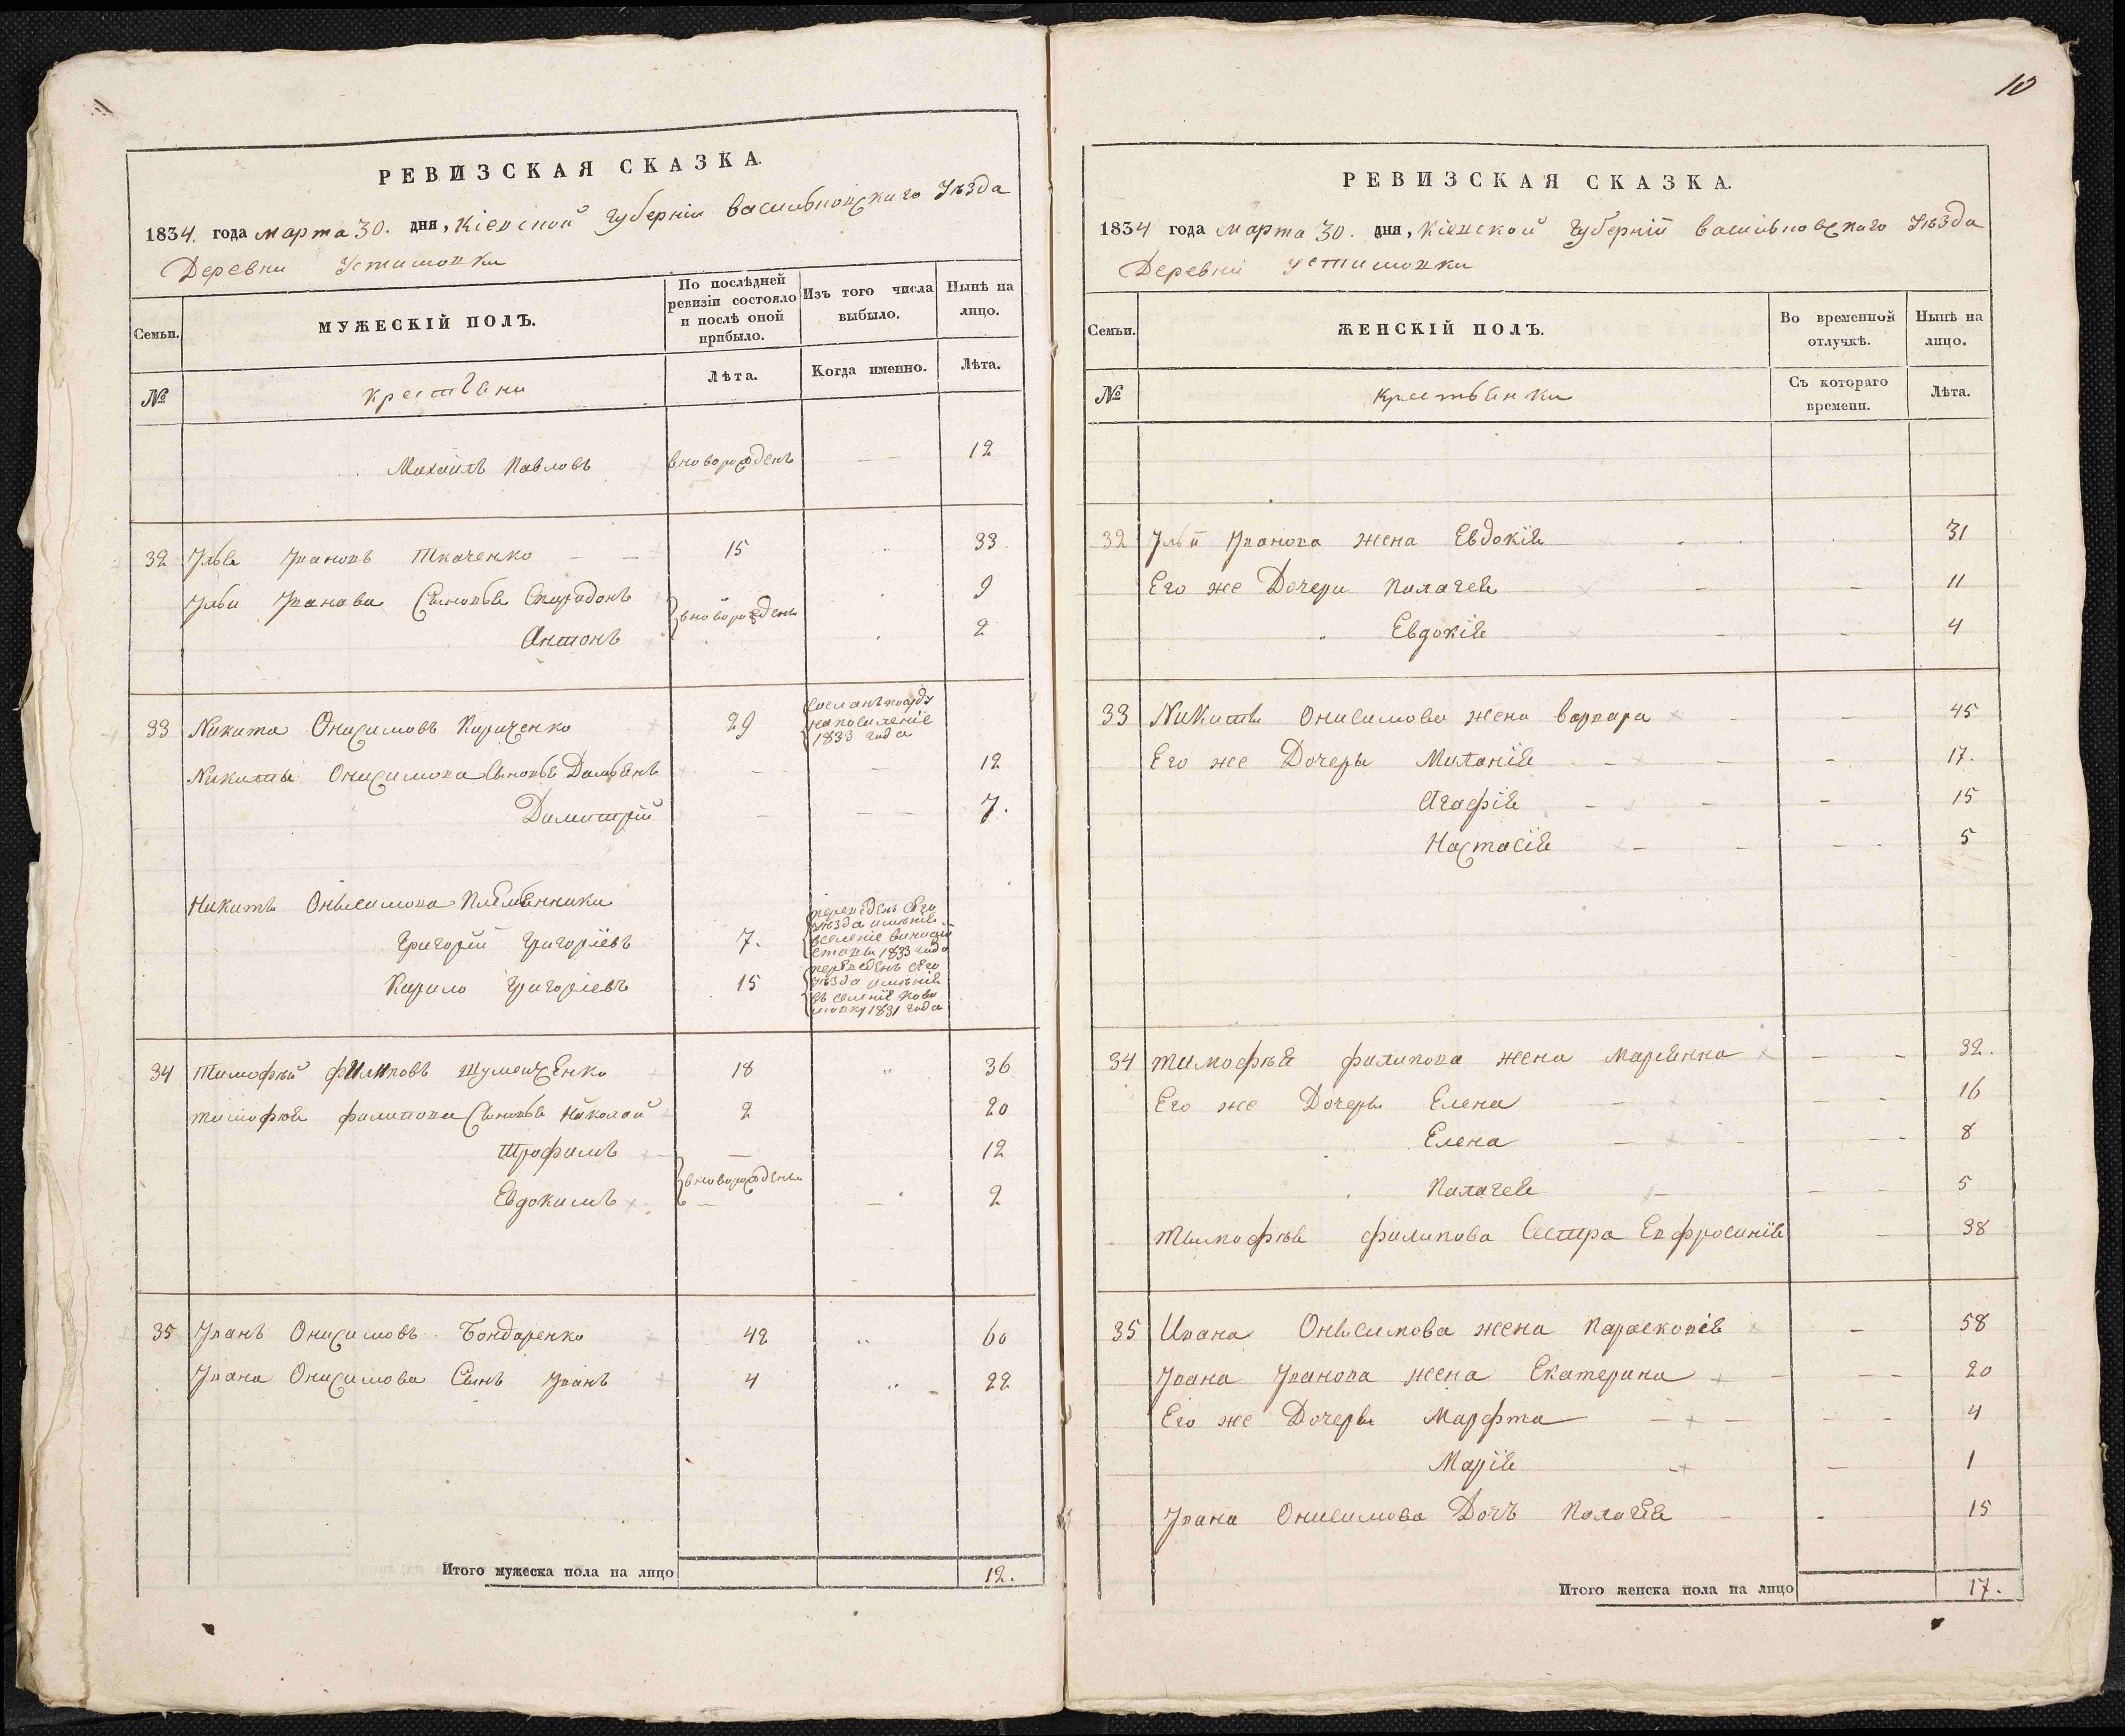 РЕВИЗСКАЯ СКАЗКА.
1834. года марта 30. дня, Кіевской губерніи васильковскаго Уѣзда
Деревни Устимовки
Семьи.
МУЖЕСКІЙ ПОЛЪ.
По послѣдней ревизіи состояло и послѣ оной прибыло.
Изъ того числа выбыло.
Нынѣ на лицо.
№
крестьяни
Лѣта.
Когда именно.
Лѣта.
Михаилъ Павловъ вноворожденъ — — 12
32 Улья Ивановъ Ткаченко — — 15 „ 33
Ульи Иванова Сыновья Спиридонъ 9
вноворождены
Антонъ 2
33 Никита Онисимовъ Кириченко 29
сосланъ по суду
на поселеніе
1833 года
Никиты Онисимова Сыновья Дамьянъ — — 12
Димитрій — — — 7.
Никиты Онысимова Племянники
Григорій Григоріевъ 7.
переведенъ сего
уѣзда имѣніе
1833 года
Кирило Григоріевъ 15
переведенъ сего
уѣзда имѣніе
въ селеніе
1831 года
34 Тимофѣй филиповъ 18 „ 36
тимофѣя филипова Сыновья Николай 2 20
Трофимъ — 12
вноворождены
Евдокимъ — — 2
35 Иванъ Онисимовъ Бондаренко 42 „ 60
Ивана Онисимова Сынъ Иванъ 4 „ 22
Итого мужеска пола на лицо 12.
10
РЕВИЗСКАЯ СКАЗКА.
1834 года марта 30. дня, Кіевской губерній васильковскаго Уѣзда
Деревни устимовки
Семьи.
ЖЕНСКІЙ ПОЛЪ.
Во временной отлучкѣ.
Нынѣ на лицо.
№
крестьянки
Съ котораго времени.
Лѣта.
32 Ульи Иванова жена Евдокія 31
Его же Дочери Палагея — — 11
„ Евдокія — — 4
33 Никиты Онисимова жена варвара — — 45
Его же Дочеры Миланія — — — 17.
Агафія — — — 15
Настасія — — — 5
34 тимофѣя филипова жена Маріянна — — 32.
Его же Дочеры Елена — — — 16
Елена — — — — 8
Палагея — — — 5
Тимофѣя филипова Сестра Евфросинія — 38
35 Ивана Онысимова жена Парасковія — 58
Ивана Иванова жена Екатерина — — — 20
Его же Дочеры Марфта — — — — 4
Марія — — 1
Ивана Онисимова Дочъ Палагея — - 15
Итого женска пола на лицо 17.